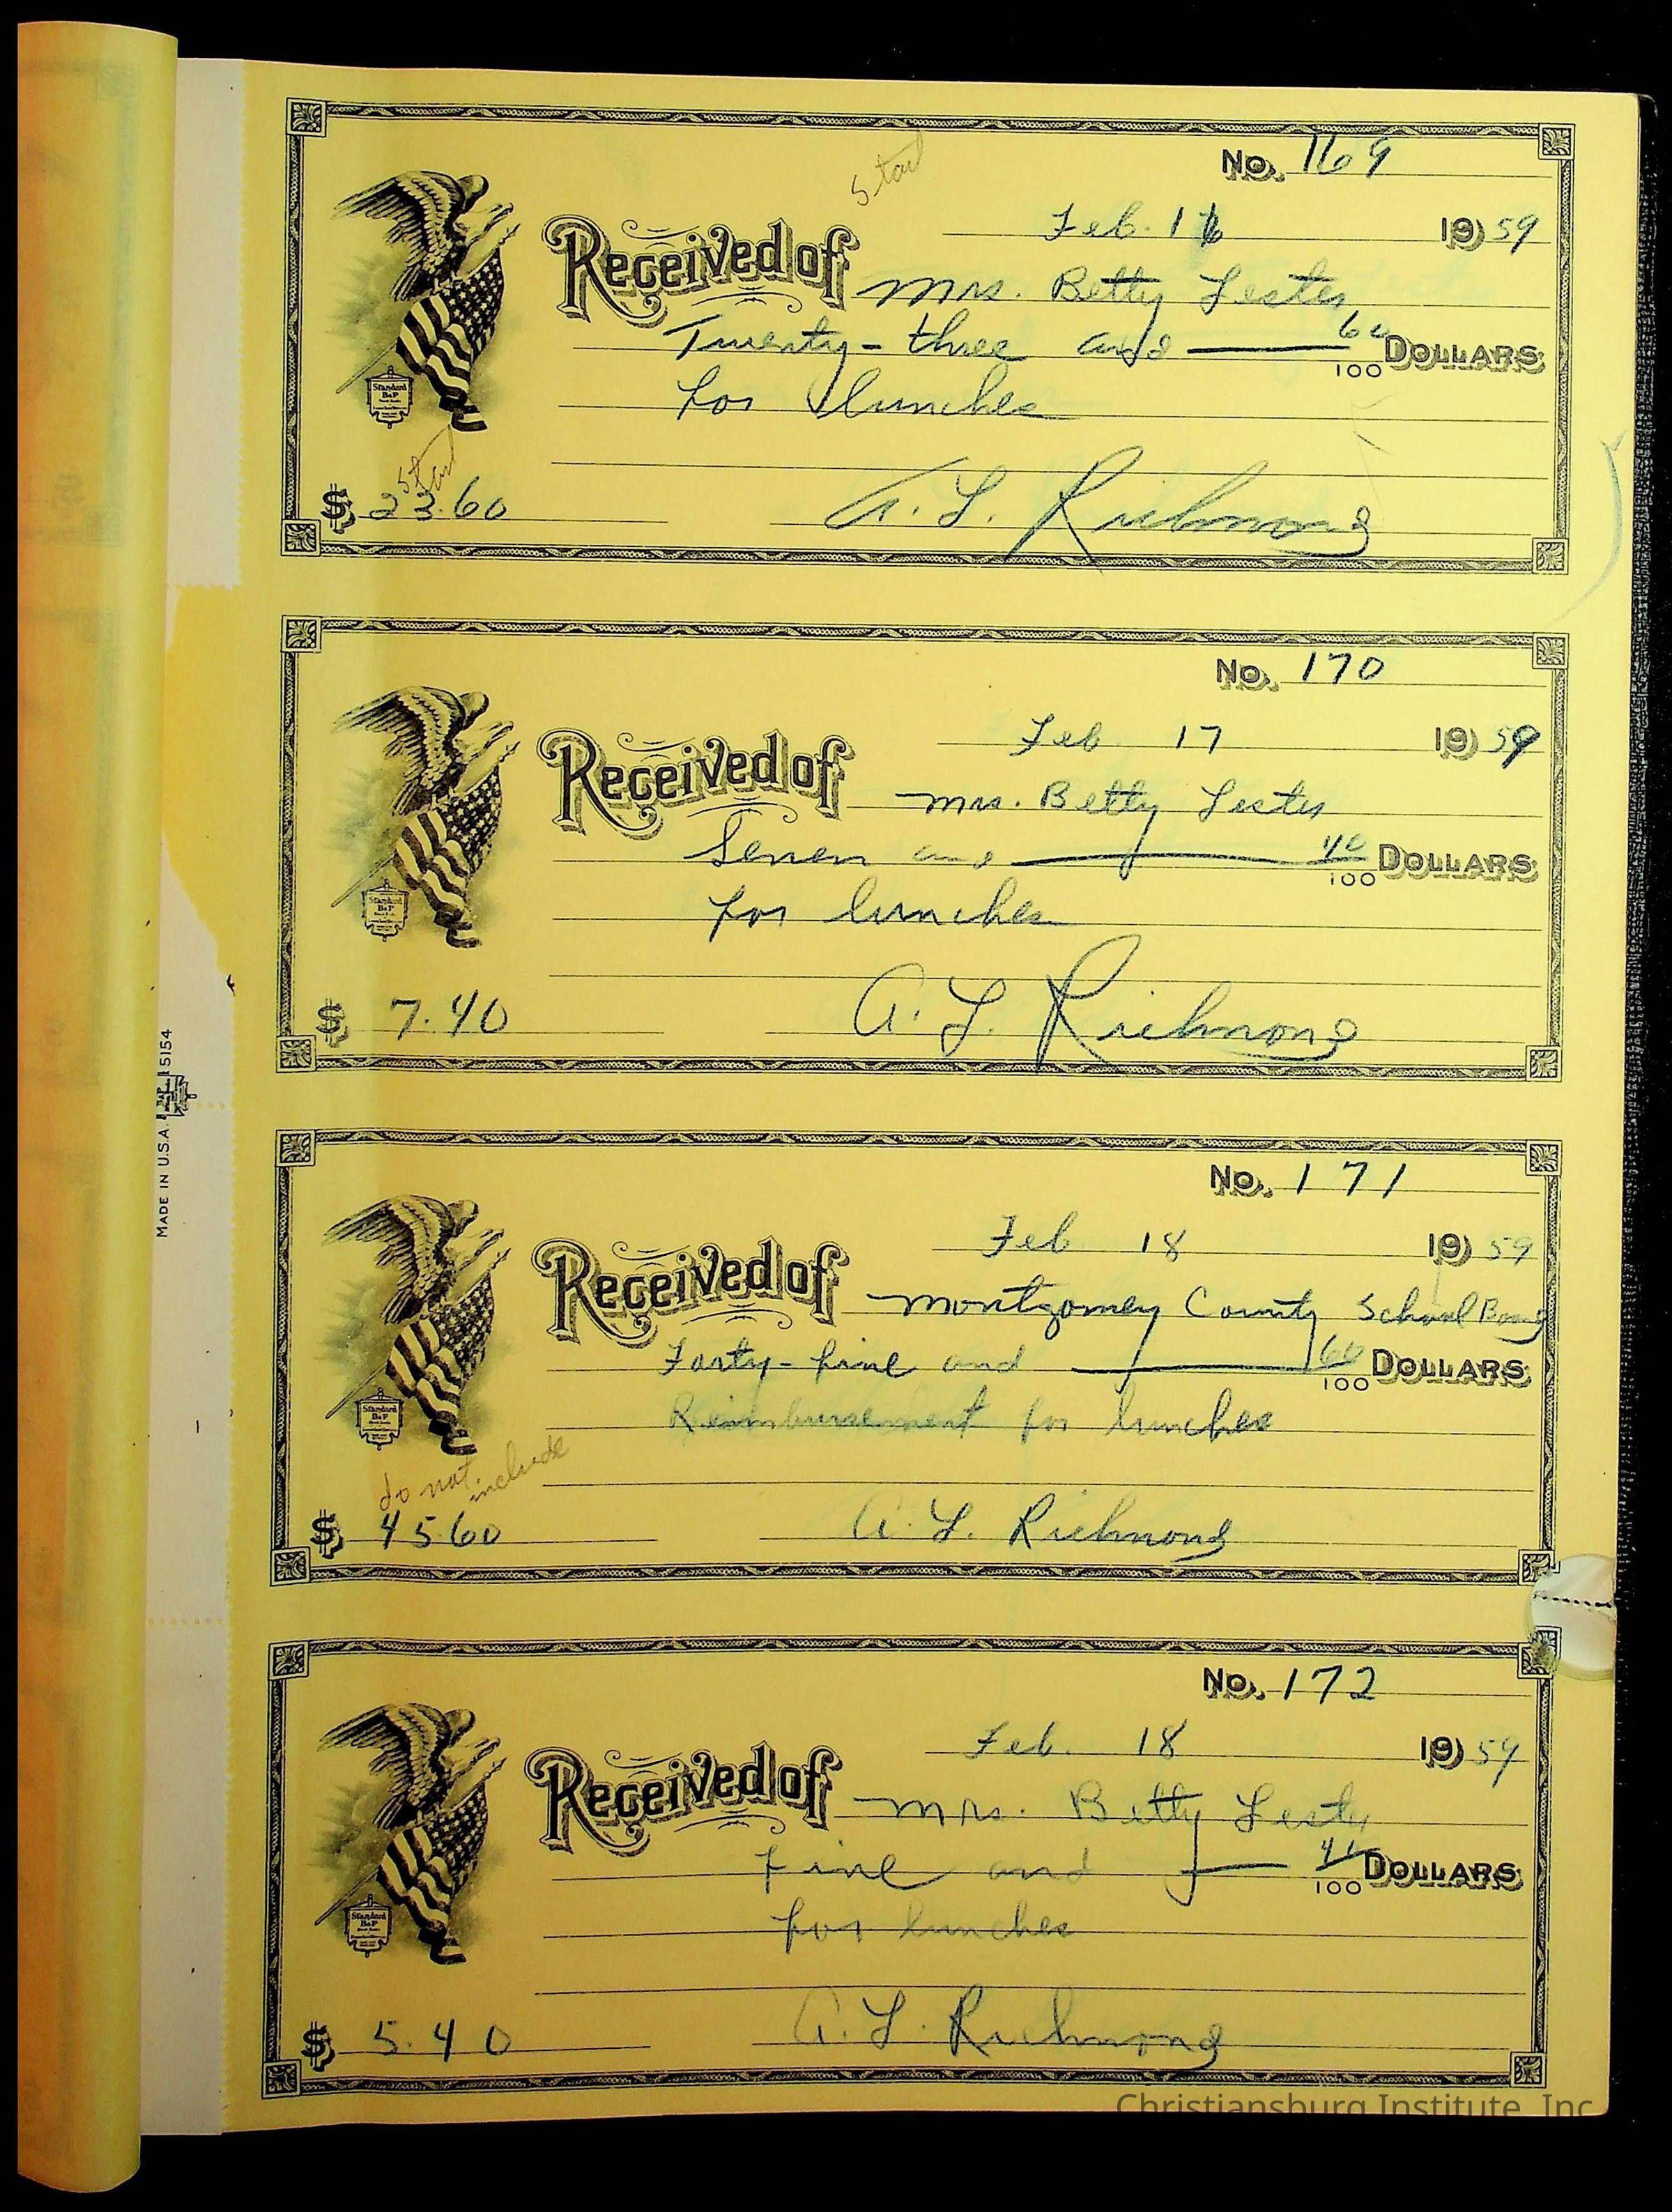 start
No. 169
Feb. 16 1959
Received of Mrs. Betty Lester
Twenty-three and 60/100 DOLLARS
for lunches
Standard B&P
start
$ 23.60 A. L. Richmond
No. 170
Feb 17 1959
Received of Mrs. Betty Lester
Seven and 40/100 DOLLARS
for lunches
Standard B&P
$ 7.40 A. L. Richmond
MADE IN U.S.A. 15154
No. 171
Feb 18 1959
Received of Montgomery County School Board
Forty-five and 60/100 DOLLARS
Reimbursement for lunches
Standard B&P
do not include
$ 45.60 A. L. Richmond
No. 172
Feb. 18 1959
Received of Mrs. Betty Lester
Five and 40/100 DOLLARS
for lunches
Standard B&P
$ 5.40 A. L. Richmond
Christiansburg Institute, Inc